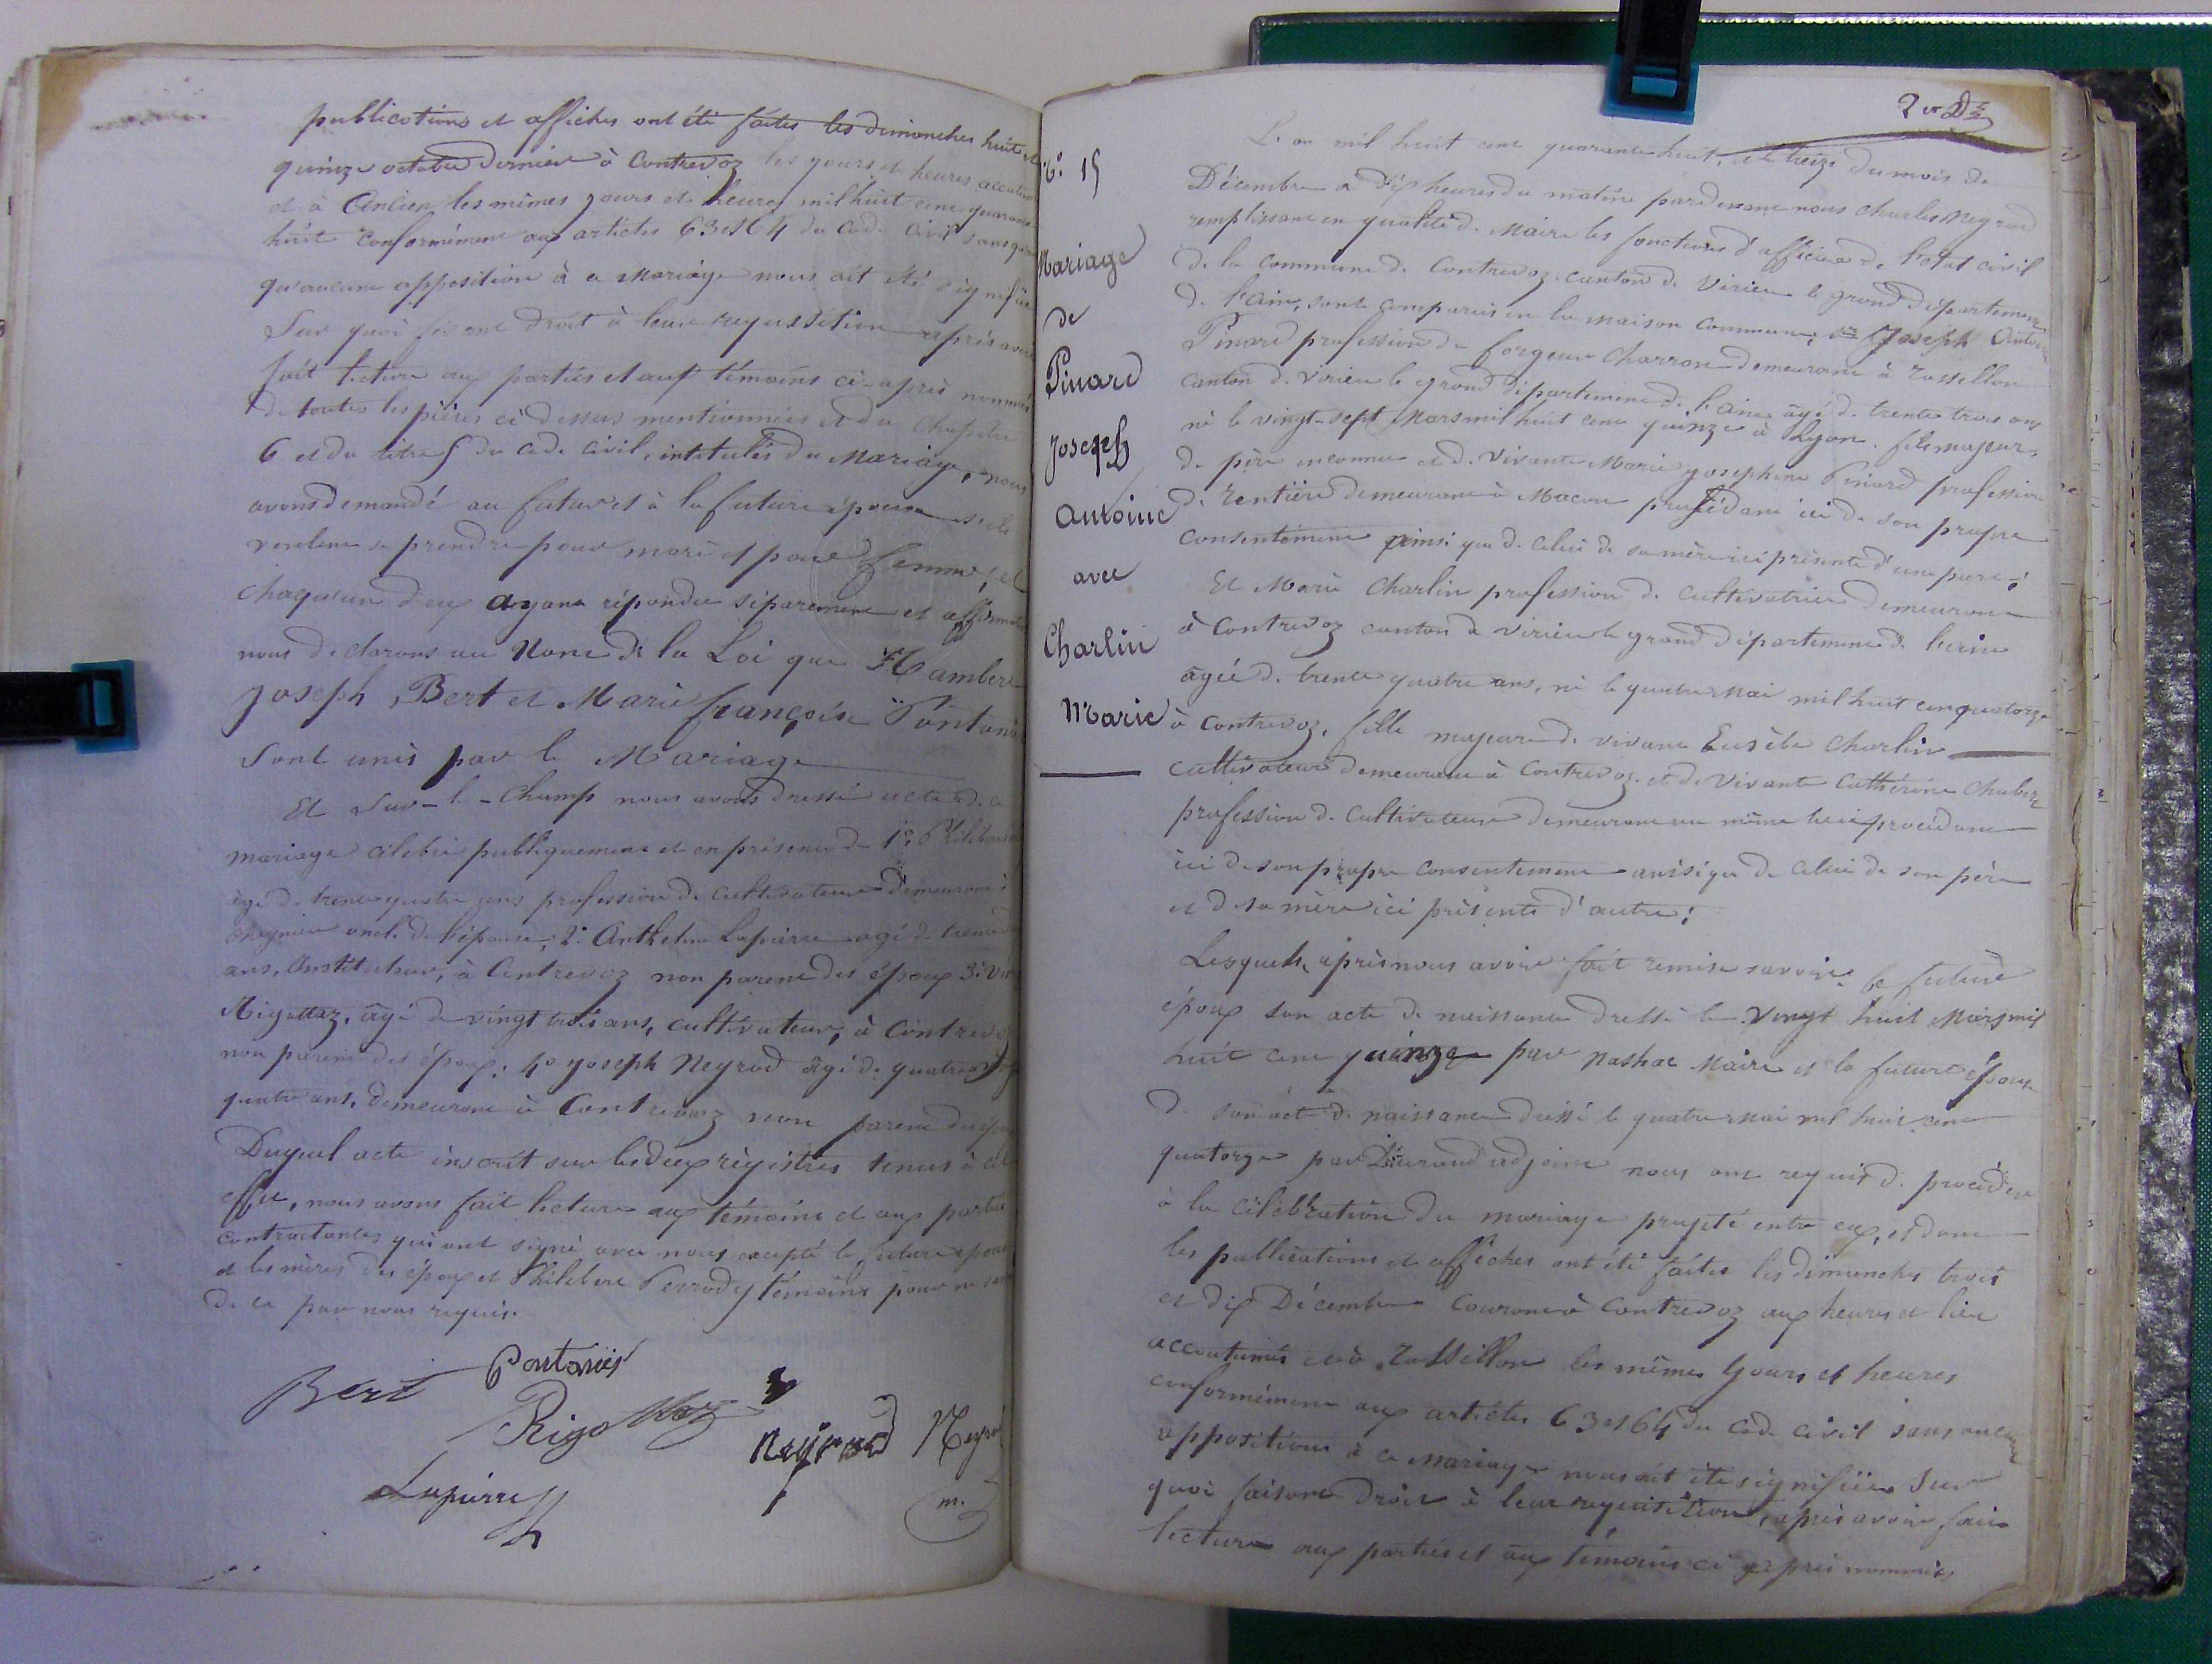 publications et affiches ont été faites les dimanches huit et
quinze octobre dernier à Contrevoz les jours et heures
et à les mêmes jours et heures mil huit cent quarante
huit conformément aux articles 63 et 64 du Code Civil
qu'aucune opposition à ce Mariage nous ait été signifiée
Sur quoi droit à leur requisition après avoir
fait lecture aux parties et aux témoins ci-après nommés
de toutes les pièces ci dessus mentionnées et du Chapitre
6 et du titre 5 du Code Civil, intitulés du Mariage, nous
avons demandé au futur et à la future épouse s'ils
veulent se prendre pour mari et pour femme, et
chaqu'un d'eux ayant répondu séparement et affirmati
nous déclarons au Nom de la Loi que Hambert
Joseph Bert et Marie françoise Pontanie
Sont unis par le Mariage
Et Sur-le-Champ nous avons dressé acte de ce
mariage célébré publiquement et en présence de 1° Philibert
âgé de trente quatre ans profession de cultivateur demeurant à
oncle de l'épouse; 2° Anthelme Lapierre agé de trente
ans, Instituteur, à Contrevoz non parent des époux 3°
Rigottaz, âgé de vingt trois ans, cultivateur, à Contrevoz
non parent des époux; 4° Joseph Neyrod âgé de quatre
quatre ans, demeurant à Contrevoz non parent des époux
Duquel acte inscrit sur les deux régistres tenus à cet
effet, nous avons fait lecture aux témoins et aux parties
contractantes qui ont signé avec nous excepté le future époux
et les mères des époux et Philibert Perrody témoins pour ne savoir
de ce par nous requis.
Bert Pontanier
Rigottaz
Neyrod Neyrod
Lapierre
m.
2 er Dre
L'an mil huit cent quarante huit, et le treize du mois de
N° 15
Décembre à dix heures du matin pardevant nous Charles Neyrod
remplissant en qualité de Maire les fonctions d'officier de l'état civil
Mariage
de la commune de Contrevoz canton de Virieu le grand département
de l'ain, sont comparus en la maison commune; Joseph Antoine
de
Pinard
Pinard profession de forgeur Charron demeurant à rossillon
canton de Virieu le grand département de l'ain âgé de trente trois ans
né le vingt-sept Mars mil huit cent quinze à Lyon. fils majeur,
Joseph
de père inconnu et de vivante Marie Josephine Pinard profession
Antoine
de rentière demeurant à Macon procédant ici de son propre
consentement ainsi que de celui de sa mère ici présente d'une part;
avec
Et Marie Charlin profession de cultivatrice demeurant
Charlin
à Contrevoz canton de virieu le grand département de l'ain
âgée de trente quatre ans, né le quatre Mai mil huit cent quatorze
Marie
à Contrevoz, fille majeure de vivant Eusèbe Charlin
cultivateur demeurant à Contrevoz et de vivante Cathérine Chaber
profession de Cultivateur demeurant au même lieu procédant
ici de son propre consentement ainsi que de celui de son père
et de sa mère ici présents d'autre;
Lesquels, après nous avoir fait remise savoir: le futur
époux son acte de naissance dressé le vingt huit Mars mil
huit cent quinze par Maire et la future épouse
de son acte de naissance dressé le quatre Mai mil huit cent
quatorze par Durand adjoint nous ont requis de procéder
à la célébration du mariage projeté entre eux, et dont
les publications et affiches ont été faites les dimanches trois
et dix Décembre courant à Contrevoz aux heures et lieu
accoutumés et à rossillon les mêmes Jours et heures
conformément aux articles 63 et 64 du Code Civil sans aucune
opposition à ce mariage nous ait été signifiée Sur
quoi faisant droit à leur requisition, après avoir fait
lecture aux parties et aux témoins ci après nommés